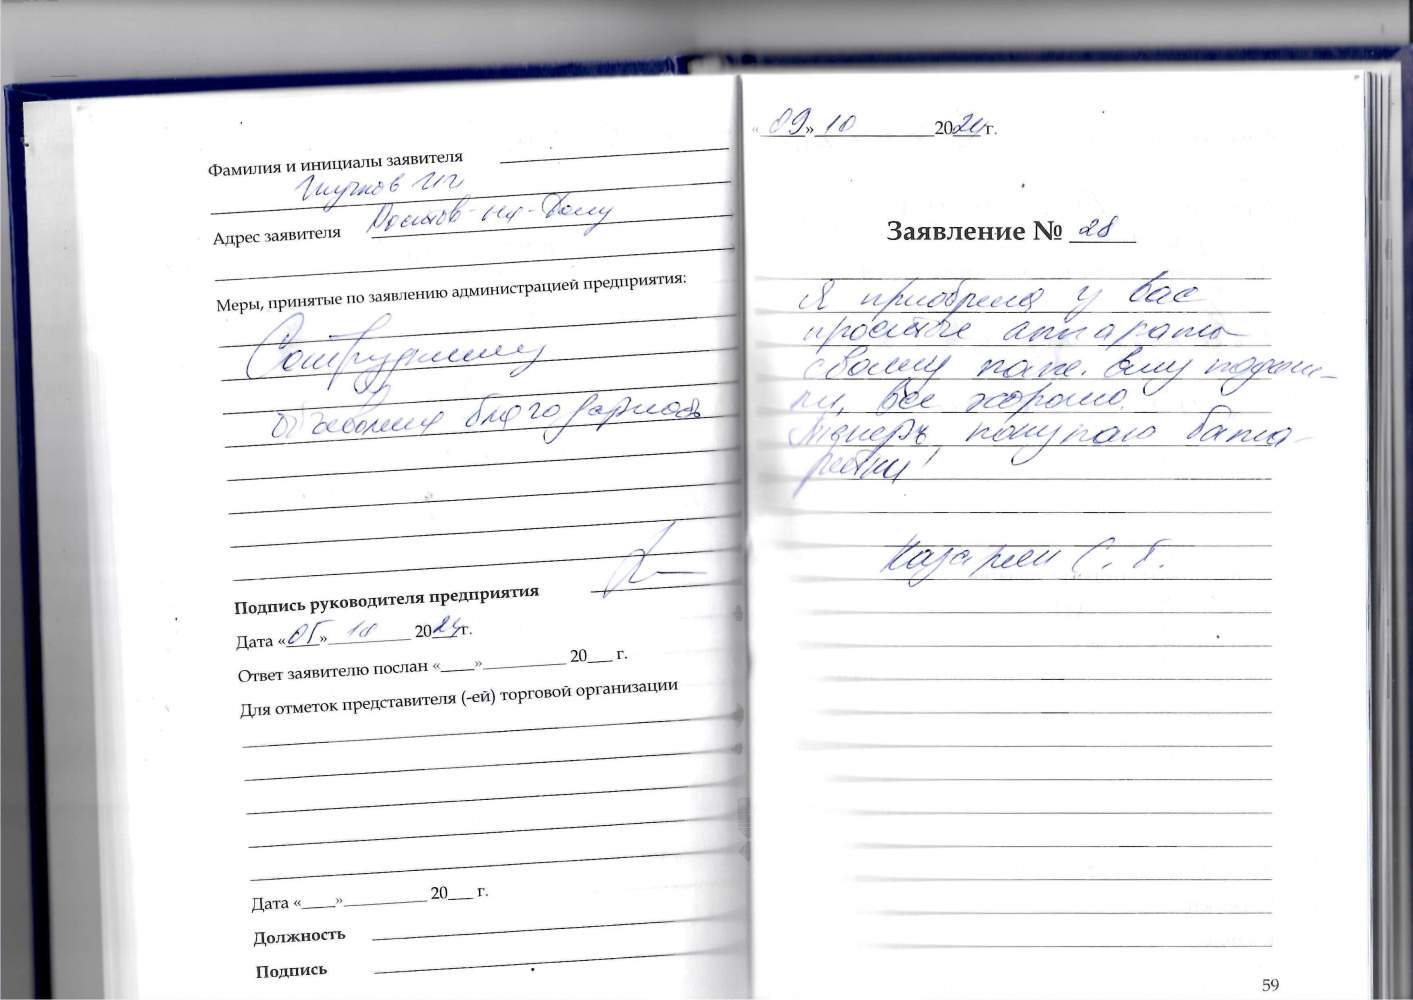 Фамилия и инициалы заявителя
Глучков И Г
Адрес заявителя Ростов-на-Дону
Меры, принятые по заявлению администрацией предприятия:
Сотруднику
объявлена благодарность
Подпись руководителя предприятия
Дата «05» 10 2024г.
Ответ заявителю послан «____»__________ 20___ г.
Для отметок представителя (-ей) торговой организации
Дата «____»__________ 20___ г.
Должность
Подпись
«09» 10 2024 г.
Заявление № 28
Я приобрела у вас
простые аппараты
своему папе. Ему подош-
ли, все хорошо.
Теперь покупаю бата-
рейки!
Назарян С. Г.
59